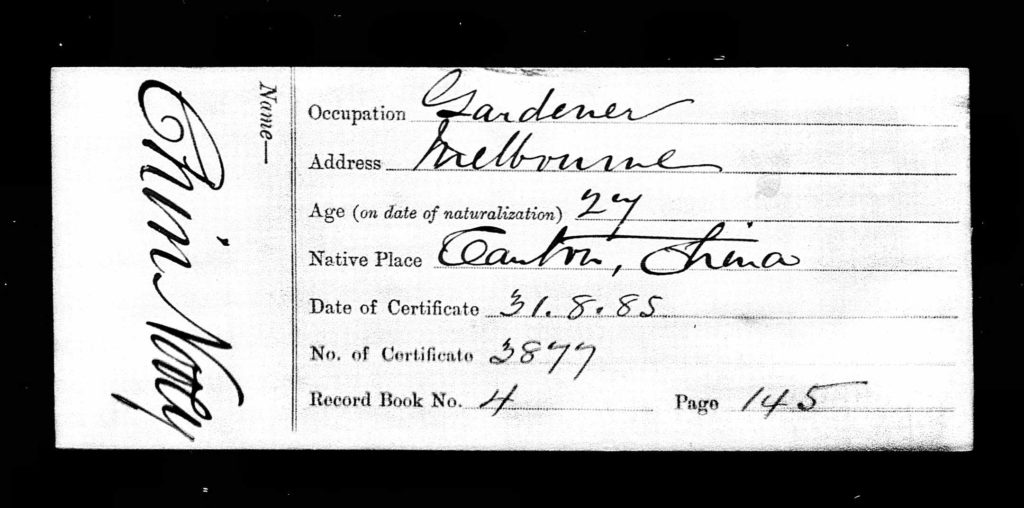 Name—
Chin Nooey
Occupation Gardener
Address Melbourne
Age (on date of naturalization) 27
Native Place Canton, China
Date of Certificate 31.8.85
No. of Certificate 3877
Record Book No. 4 Page 145